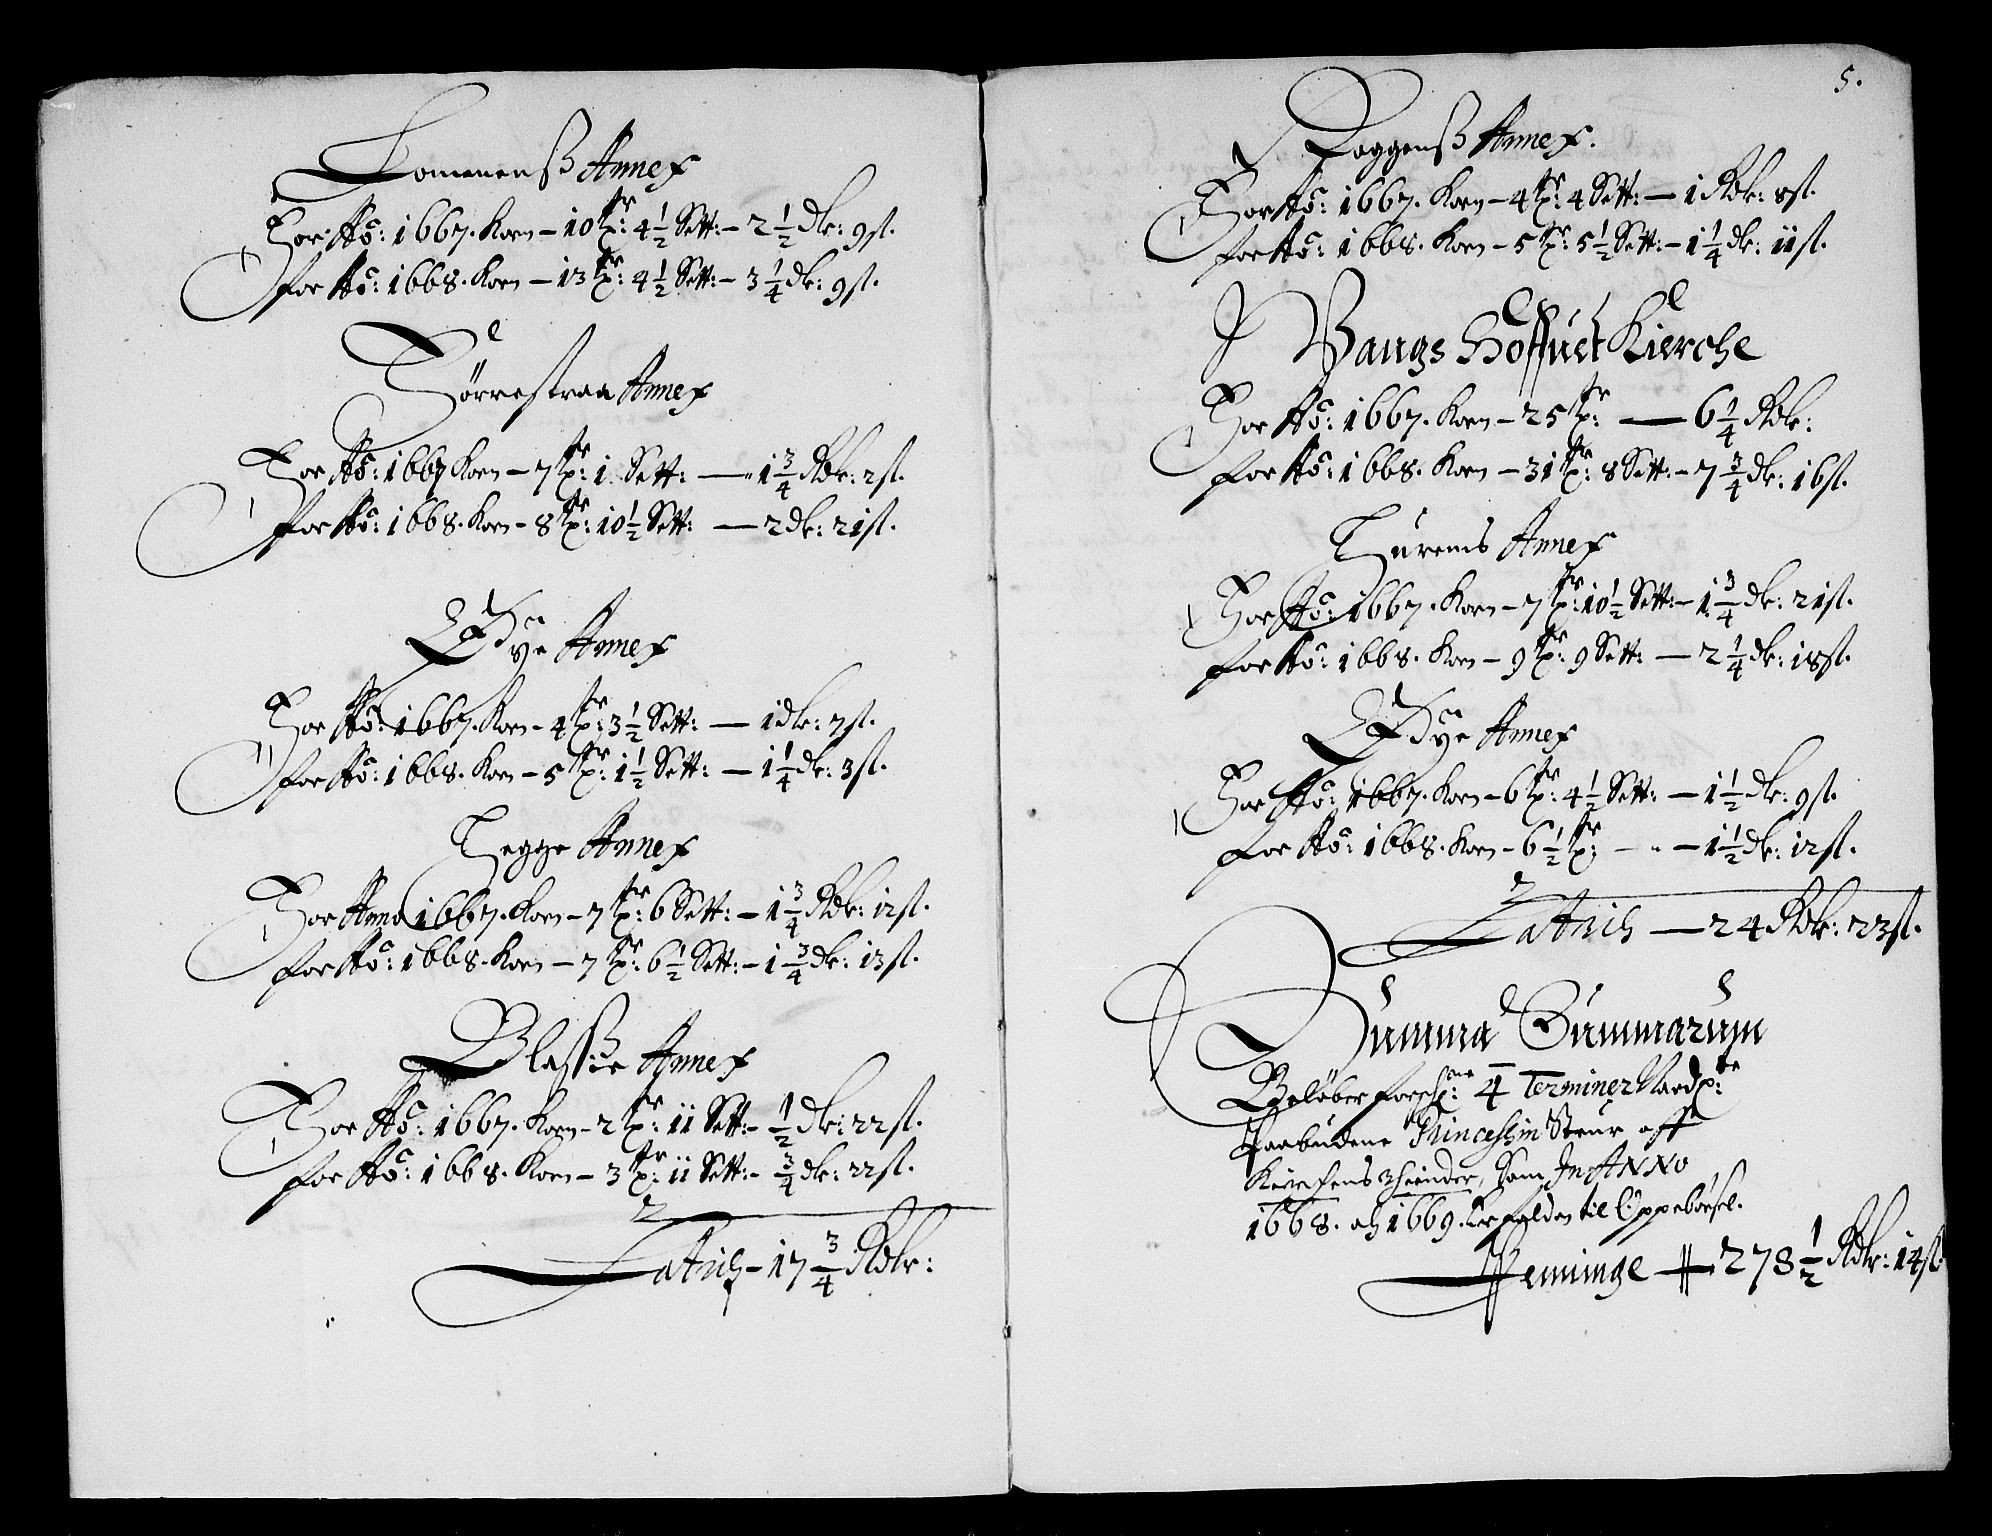 Lomenenß Annex
For Aõ: 1667. Korn – 10 tr: 4½ Sett: – 2½ dlr: 9 st.
for Aõ: 1668. Korn – 13 tr: 4½ Sett: – 3¼ dlr: 9 st.
Hörrestraa Annex
For Aõ: 1667 Korn – 7 tr: 1 Sett: — 1¾ Rdlr: 2 st.
For Aõ: 1668. Korn – 8 tr: 10½ Sett: — 2 dlr: 21 st.
Ødÿe Annex
For Aõ: 1667. Korn – 4 tr: 3½ Sett: — 1 dlr: 7 st.
for Aõ: 1668. Korn – 5 tr: 1½ Sett: — 1¼ dlr: 3 st.
Hegge Annex
For Anno 1667. Korn – 7 tr: 6 Sett: – 1¾ Rdlr: 12 st.
for Aõ: 1668. Korn – 7 tr: 6½ Sett: – 1¾ dlr: 13 st.
Blaßie Annex
For Aõ: 1667. Korn – 2 tr: 11 Sett: – ½ dlr: 22 st.
for Aõ: 1668. Korn – 3 tr: 11 Sett: – ¾ dlr: 22 st.
Latus – 17¾ Rdlr:
5.
Roggenß Annex.
For Aõ: 1667. Korn – 4 tr: 4 Sett: — 1 Rdlr: 8 st.
for Aõ: 1668. Korn – 5 tr: 5½ Sett: – 1¼ dlr: 11 st.
Wangs Hoffuet Kierche
For Aõ: 1667. Korn – 25 tr: — 6¼ Rdlr:
for Aõ: 1668. Korn – 31 tr: 8 Sett: – 7¾ dlr: 16 st.
Hurems Annex
For Aõ: 1667. Korn – 7 tr: 10½ Sett: – 1¾ dlr: 21 st.
for Aõ: 1668. Korn – 9 tr: 9 Sett: — 2¼ dlr: 18 st.
Ødÿe Annex
For Aõ: 1667. Korn – 6 tr: 4½ Sett: — 1½ dlr: 9 st.
for Aõ: 1668. Korn – 6½ tr: – „ – 1½ dlr: 12 st.
Latus — 24 Rdlr: 23 st.
Summa Summarum
Beløber forschr:ne 4 Terminer
Paabudene Princeshin Steur aff
Kirchens thiender, Som In ANNO
1668. och 1669. er falden til Oppebörsel.
Penninge — 278½ Rdlr: 14 st.